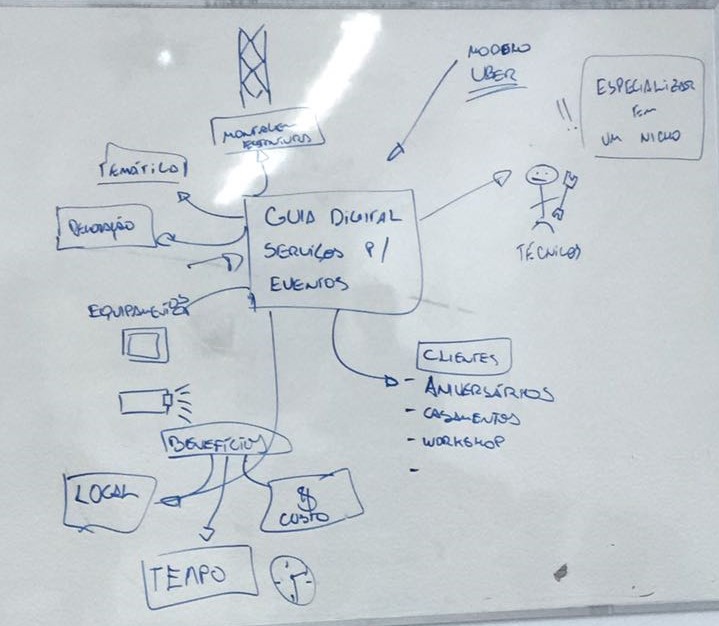 MODELO
UBER
ESPECIALIZAR
EM
UM NICHO
!!
MONTAGEM
ESTRUTURAS
TEMÁTICA
DECORAÇÃO
GUIA DIGITAL
SERVIÇOS P/
EVENTOS
TÉCNICOS
EQUIPAMENTOS
CLIENTES
- ANIVERSÁRIOS
- CASAMENTOS
- WORKSHOP
-
BENEFÍCIOS
LOCAL
$
CUSTO
TEMPO